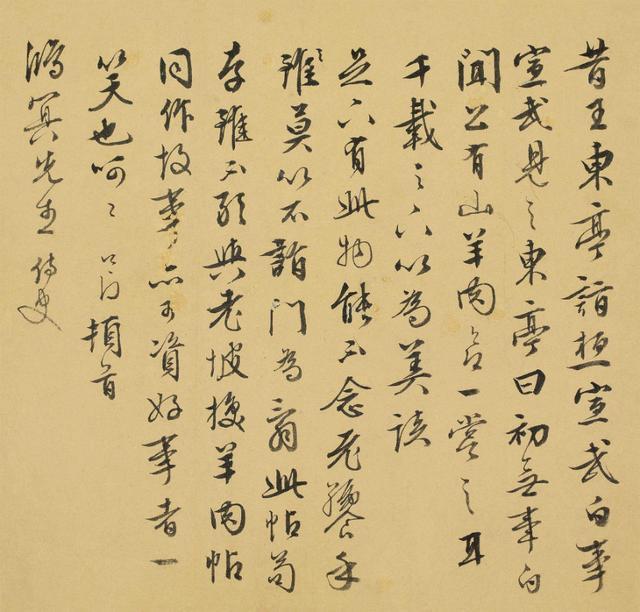 昔王東亭詣桓宣武白事
宣武見之東亭曰初無事白
聞公有山羊肉欲一嘗之耳
千載之下以為美談
足下有此物能不念老饕乎
雖莫以不詣門為Pre此帖苟
存雖不能與老坡換羊肉帖
同作故事亦可資好事者一
笑也呵呵 頓首
鴻冥先生侍史